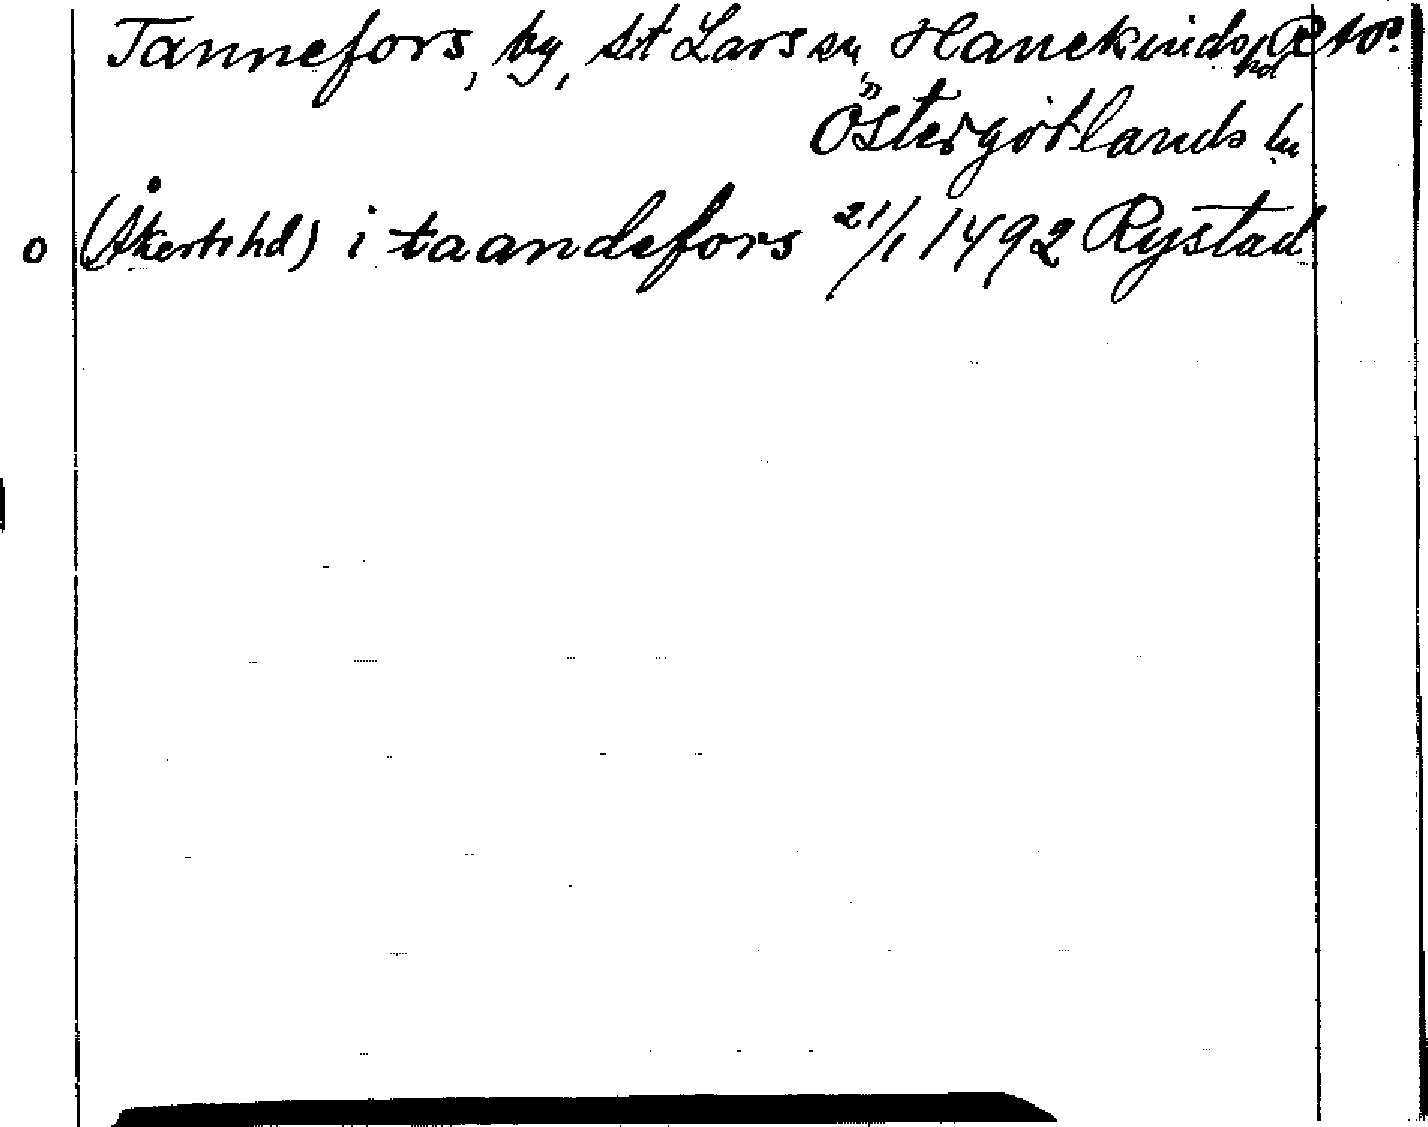 Tannefors, by, St Lars sn, Hanekinds hd
Östergötlands ln
o (Åkerbi hd) i taandefors 21/1 1492 Rystad